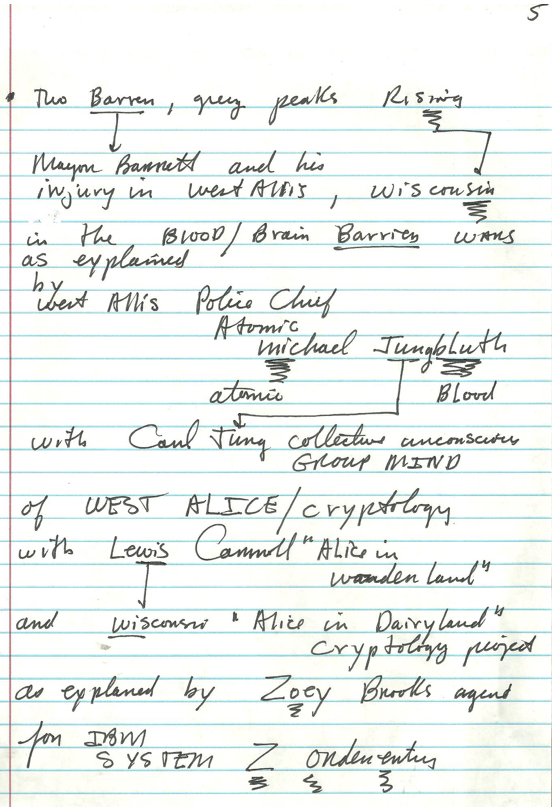 5
• Two Barren, grey peaks Rising
Mayor Barrett and his
injury in West Allis, Wisconsin
in the BLOOD/Brain Barrier wars
as explained
by
West Allis Police Chief
Atomic
michael Jungbluth
atomic Blood
with Carl Jung collective unconscious
GROUP MIND
of WEST ALICE/cryptology
with Lewis Carroll "Alice in
wonderland"
and wisconsin "Alice in Dairyland"
cryptology project
as explaned by Zoey Brooks agent
for IBM
SYSTEM Z order entry